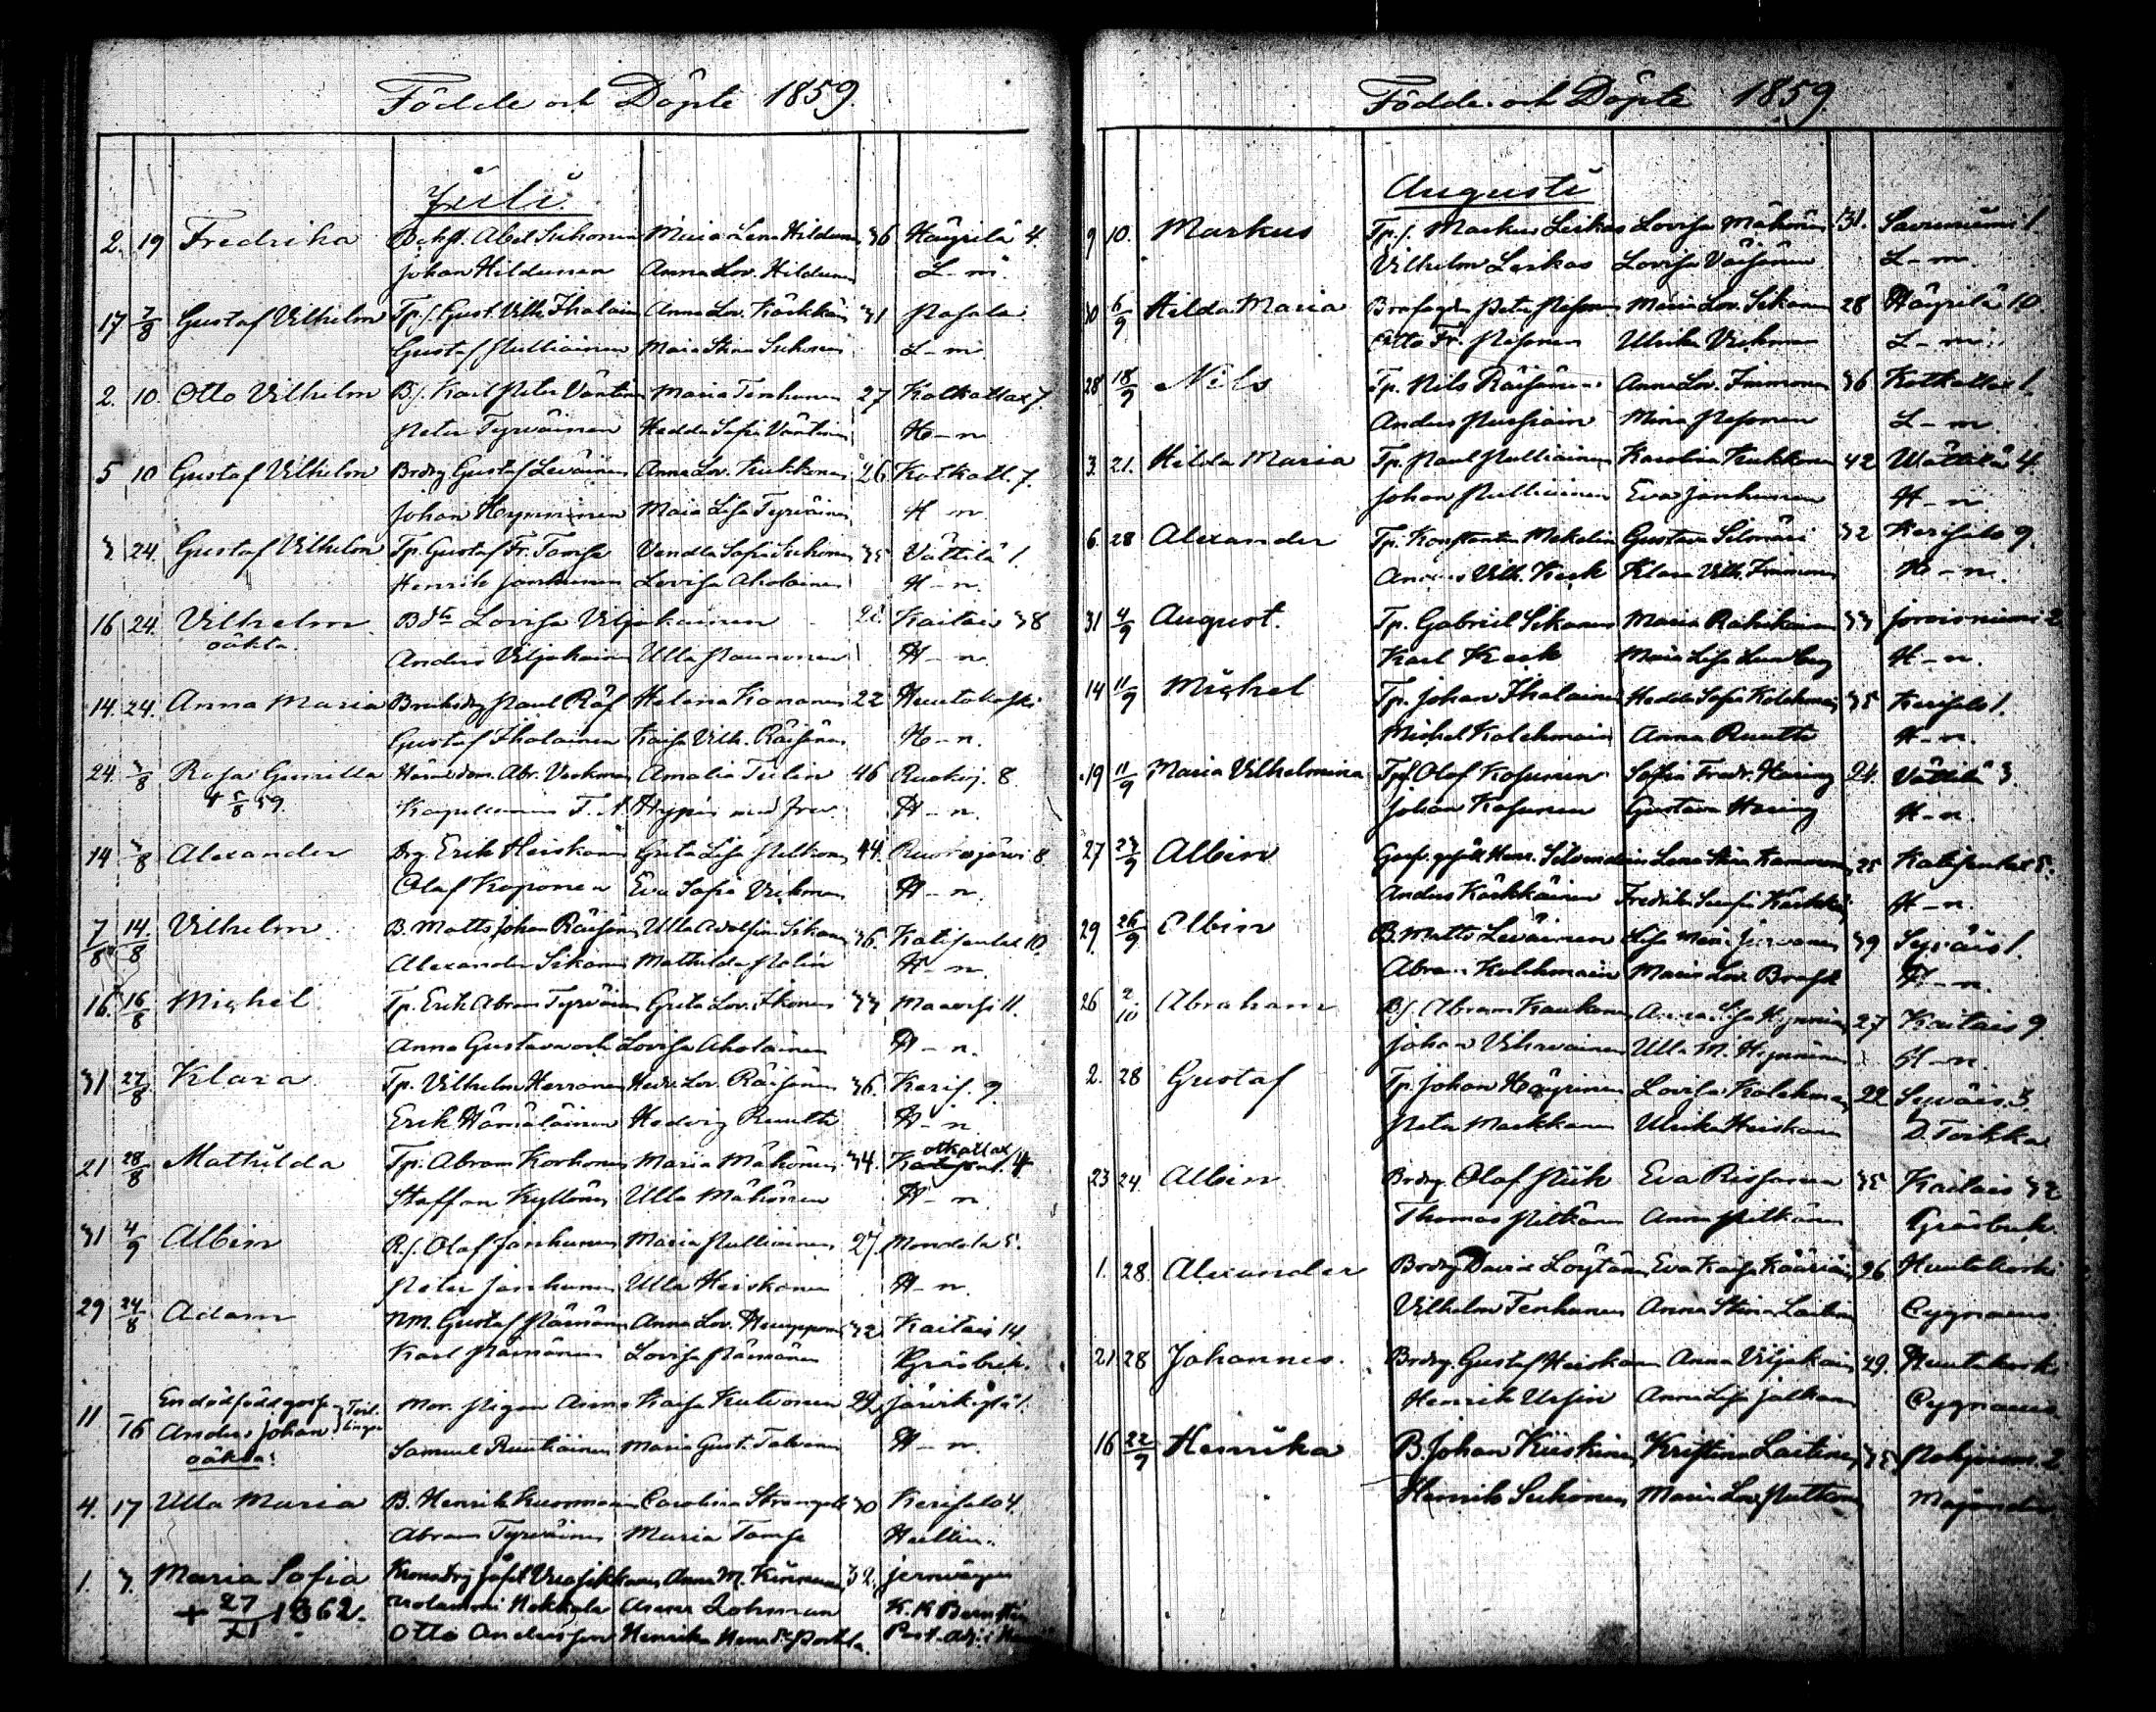 Födde och Döpte 1859.
Juli.
2. 19 Fredrika Abel Suhonen Maria Lena Hildunen 36 Häyrilä 4.
Johan Hildunen Anna Lov. Hildunen L-m
17 7/8 Gustaf Vilhelm Tp.s. Gust. Vilh. Ihalain Anna Lov. Kärkkäin 31 Pasala
Gustaf Pulliainen Maria Stina Suhonen L-m.
2. 10. Otto Vilhelm B.s. Karl Peter Väntinen Maria Tenhunen 27 Kotkatlax 7.
Peter Tyrväinen Hedda Sofia Väntinen H-n
5 10 Gustaf Vilhelm Brodrg Gustaf Leväinen Anna Lov. Kukkonen 26 Kotkatl. 7.
Johan Hynninen Maria Lisa Tyrväinen H-n
3 24. Gustaf Vilhelm Tp. Gustaf Fr. Tamsa Vendla Sofia Suhonen 35 Vättilä 1.
Henrik Janhunen Lovisa Aholainen H-n.
16 24. Vilhelm Lovisa Viljakainen Kaitais 38
oäkta. Anders Viljakainen Ulla Paunonen H-n.
14. 24. Anna Maria Bruksdrg Paul Räf Helena Kononen 22 Huutokoski
Gustaf Ihalainen Kaisa Vilh. Räisänen H-n.
24. 3/8 Rosa Gunilla Abr. Veckman Amalia Tulin 46 Ruokoj. 8.
+ 5/8 59. Kapellanen F. A. Hypén med fru. H-n.
14 3/8 Alexander Drg Erik Heiskanen Greta Lisa Peltonen 44. Ruokojärvi 8
Olaf Koponen Eva Sofia Vickman H-n.
7/8 14/8 Vilhelm. B. Matts Johan Räisänen Ulla Adolfina Sikanen 36. Katisenlax 10.
Alexander Sikanen Mathilda Polin H-n.
16. 16/8 Michel Tp. Erik Abram Tyrväinen Greta Lov. Ikonen 33 Maavesi 11.
Anna Gustava och Lovisa Aholainen H-n.
31 27/8 Klara Tp. Vilhelm Herranen Hedv. Lov. Räisänen 36. Keris. 9.
Erik Hämäläinen Hedvig Ruuth H-n
21 28/8 Mathilda Tp. Abram Korhonen Maria Mähönen 34. Kotkatlax 4
Staffan Kyllönen Ulla Mähönen H-n
31 4/9 Albin R.s. Olaf Janhunen Maria Pulliainen 27. Mondola 5.
Peter Janhunen Ulla Heiskanen H-n.
29 24/8 Adam Nm. Gustaf Pärnänen Anna Lov. Huupponen 32 Kaitais 14
Karl Pärnänen Lovisa Pärnänen Gräsbeck.
11 En dödfödd gosse Pigan Anna Kaisa Kutvonen 22 Järvikylä 1.
16 Anders Johan Tvillingar Samuel Ruutiainen Maria Gust. Tolvanen H-n.
oäkta.
4. 17 Ulla Maria B. Henrik Kuorman Carolina Strengell 30 Kerisalo 4.
Abram Tyrväinen Maria Tamsa Hallin.
1. 3. Maria Sofia Kronodrg Anna M. Kinnunen 32. Jernvägen
+ 27/XI 1862. Anna Lohman K. K.
Otto Andersson Henrika
Födde och Döpte 1859.
Augusti
9 10. Markus Tp.s. Markus Leskas Lovisa Mähönen 31. Savuniemi 1.
Vilhelm Leskas Lovisa Väisänen L-m.
30 6/9 Hilda Maria Peter Pesonen Maria Lov. Sikanen 28 Häyrilä 10.
Otto Fr. Pesonen Ulrika Vickman L-m.
28 18/9 Nils Tp. Nils Räisänen Anna Lov. Immonen 36 Kotkatlax 1.
Anders Pursiain Mina Pesonen L-m.
3. 21. Hilda Maria Tp. Paul Pulliainen Karolina Kukkonen 42 Wättilä 4.
Johan Pulliainen Eva Janhunen H-n.
6. 28 Alexander Tp. Konstantin Mekelin Gustava Silmäri 32 Kerisalo 9.
Vilh. Keck Klara Vilh. Immonen H-n.
31 4/9 August. Tp. Gabriel Sikanen Maria Rahikainen 33 Joroisniemi 2
Karl Keck Maria Lisa Lundberg H-n.
14 11/9 Michel Tp. Johan Ihalainen Hedda Sofia Kolehmain 35 Kerisalo 1.
Michel Kolehmain Anna Ruuth H-n.
19 11/9 Maria Vilhelmina Tp.s. Olaf Kosunen Sofia Fredr. Haring 24. Vättilä 3.
Johan Kosunen Gustava Haring H-n.
27 27/9 Albin Henr. Silvendoin Lena Stina Kammonen 25 Katisenlax 5.
Anders Kärkkäinen Fredrika H-n.
29. 26/9 Albin B. Matts Leväinen Lisa Maria 39 Syväis 1.
Abram Kolehmain Maria Lov. H-n.
26 2/10 Abraham B.s. Abram Kauhanen Anna Lisa Hynninen 27 Kaitais 9.
Johan Vihavainen Ulla M. Hynninen H-n.
2. 28 Gustaf Tp. Johan Häyrinen Lovisa Kolehmain 22 Syväis. 3.
Peter Markkanen Ulrika Heiskanen D. Toikka
23 24. Albin Brodrg. Olaf Piik Eva Rissanen 35 Kaitais 32
Thomas Pitkänen Anna Pitkänen Gräsbeck.
1. 28. Alexander Brodrg David Löytänen Eva Kaisa Kääriäin 26. Huutokoski
Vilhelm Tenhunen Anna Stina Laitin Cygnaeus
21 28 Johannes. Brodrg. Gustaf Heiskanen Anna Viljakain 29. Huutokoski
Henrik Ursin Anna Lisa Jalkanen Cygnaeus.
16 22/9 Henrika B. Johan Kiiskinen Kristina Laitinen 35 Pohjoism. 2
Henrik Suhonen Maria Lov. Majander.